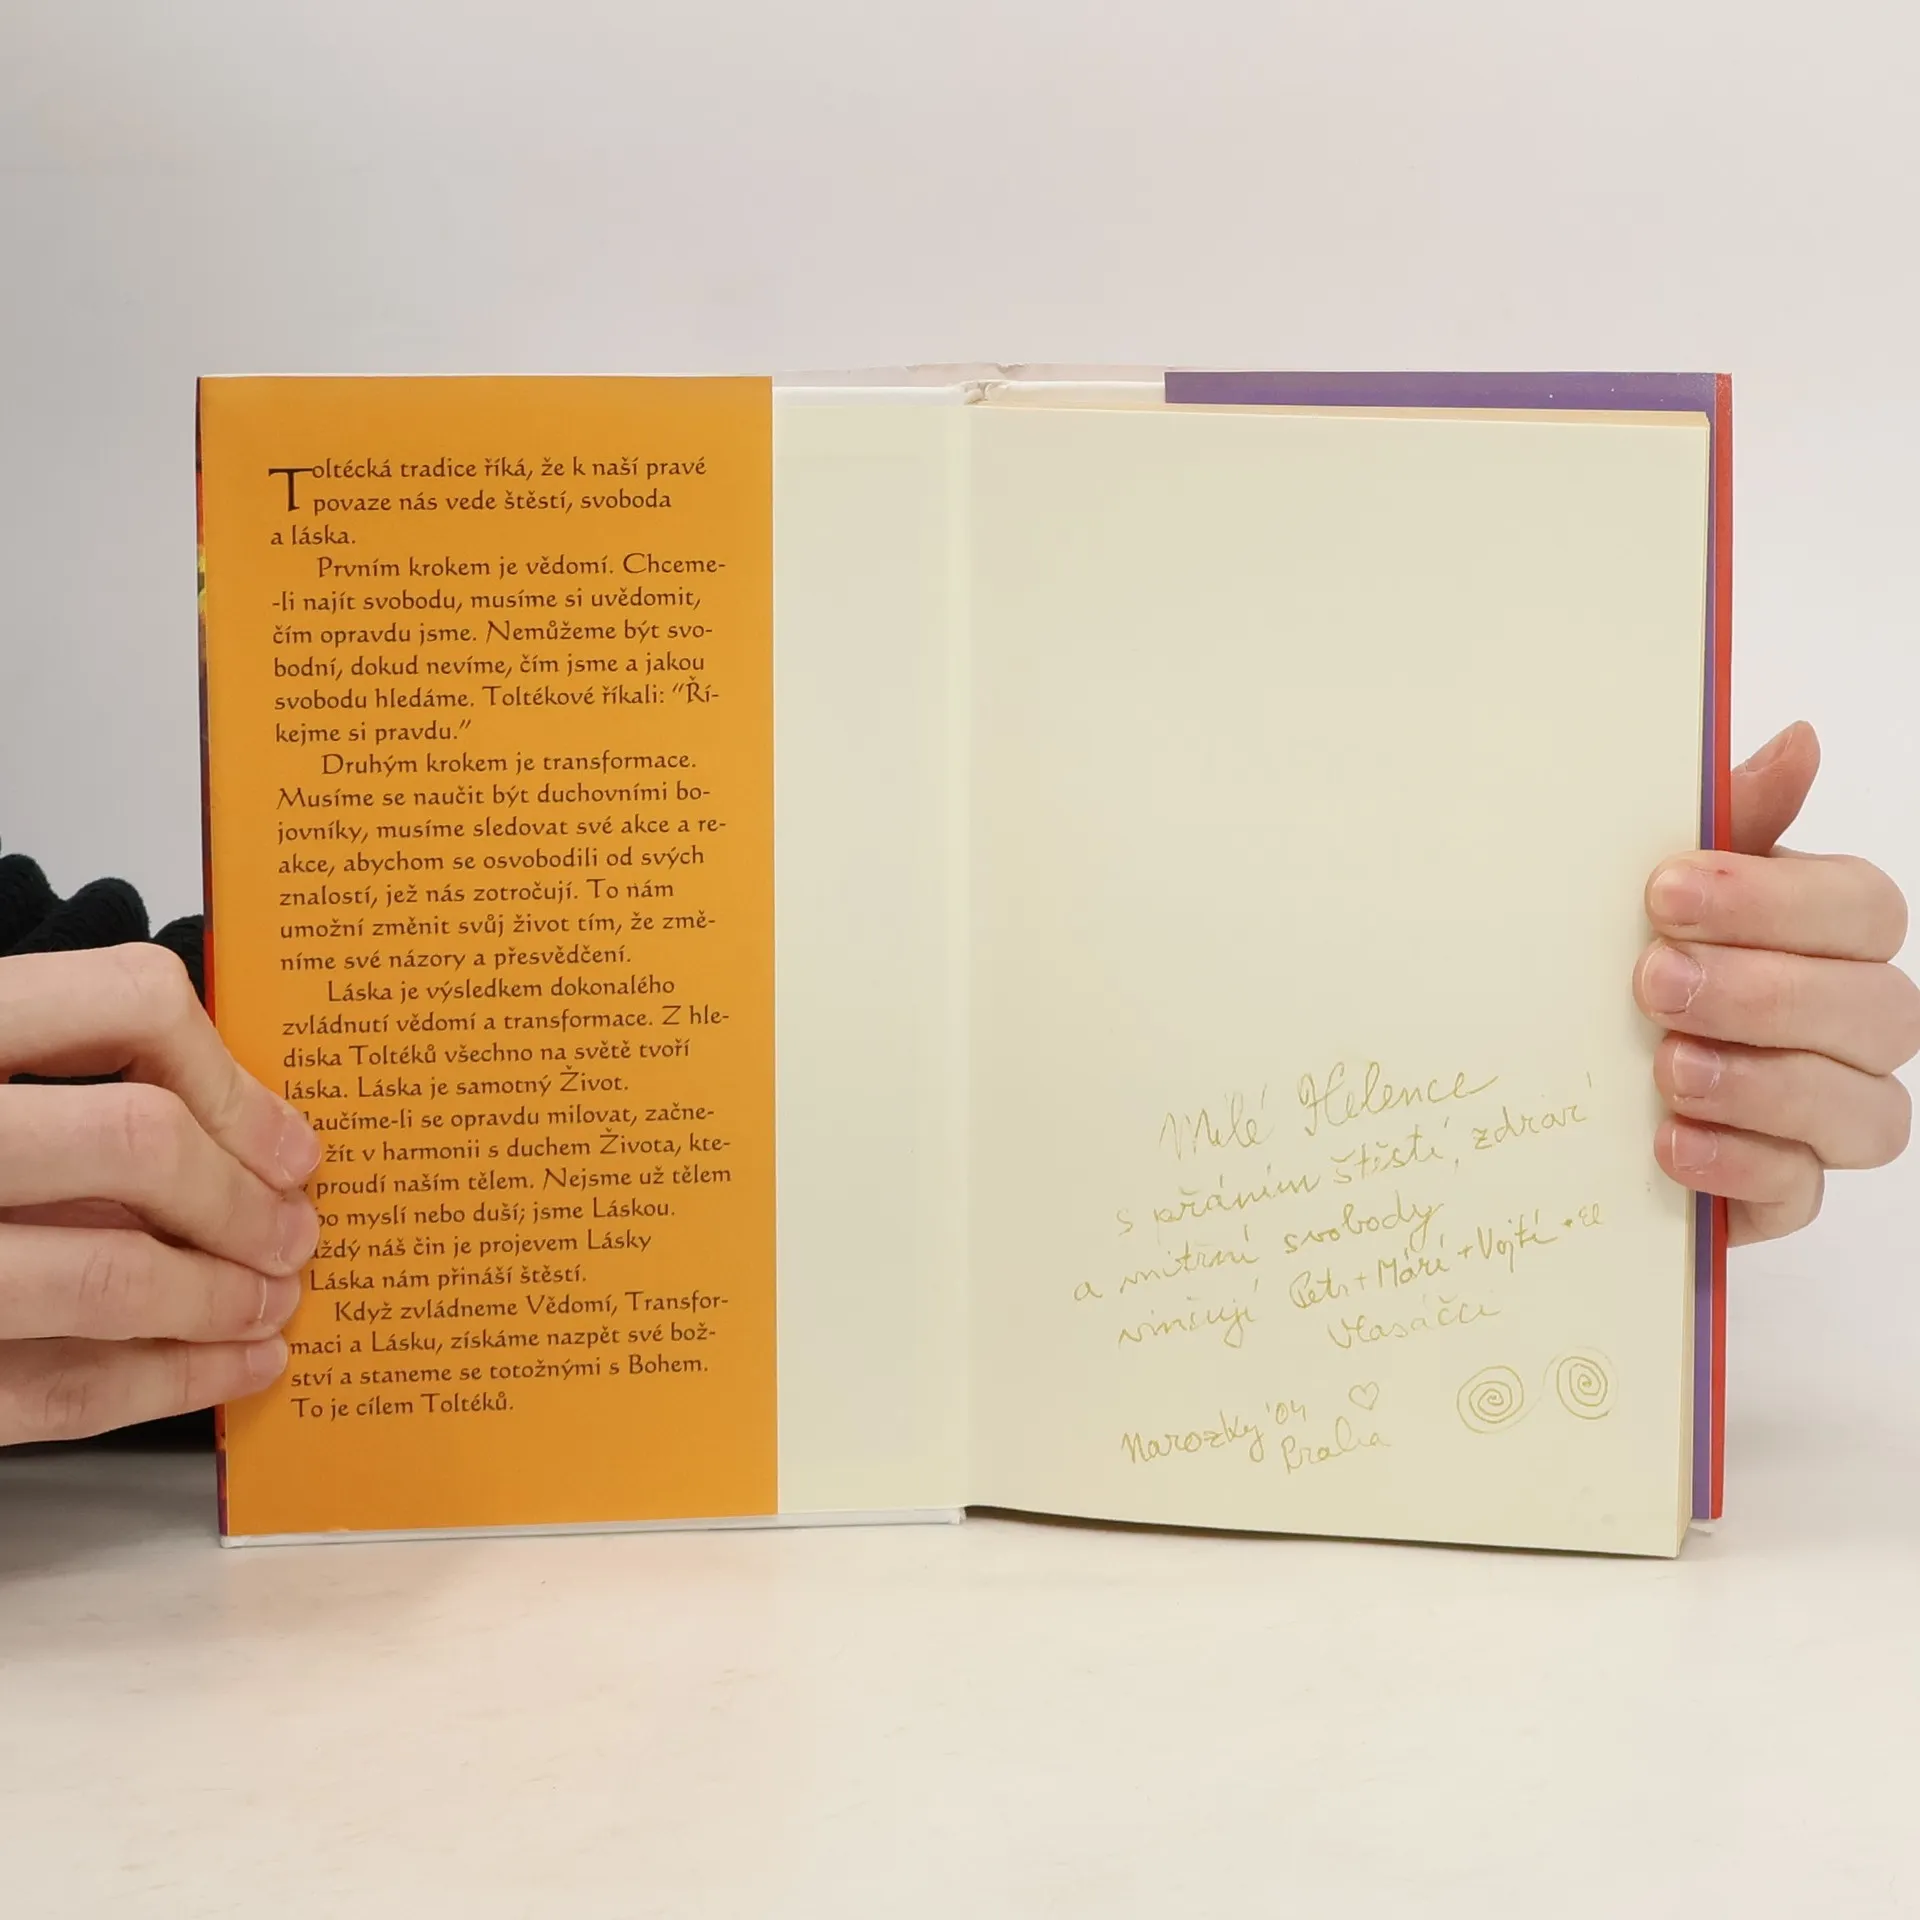 Toltécká tradice říká, že k naší pravé
povaze nás vede štěstí, svoboda
a láska.
Prvním krokem je vědomí. Chceme-
-li najít svobodu, musíme si uvědomit,
čím opravdu jsme. Nemůžeme být svo-
bodní, dokud nevíme, čím jsme a jakou
svobodu hledáme. Toltékové říkali: “Ří-
kejme si pravdu.”
Druhým krokem je transformace.
Musíme se naučit být duchovními bo-
jovníky, musíme sledovat své akce a re-
akce, abychom se osvobodili od svých
znalostí, jež nás zotročují. To nám
umožní změnit svůj život tím, že změ-
níme své názory a přesvědčení.
Láska je výsledkem dokonalého
zvládnutí vědomí a transformace. Z hle-
diska Toltéků všechno na světě tvoří
láska. Láska je samotný Život.
aučíme-li se opravdu milovat, začne-
žít v harmonii s duchem Života, kte-
proudí naším tělem. Nejsme už tělem
bo myslí nebo duší; jsme Láskou.
aždý náš čin je projevem Lásky
Láska nám přináší štěstí.
Když zvládneme Vědomí, Transfor-
maci a Lásku, získáme nazpět své bož-
ství a staneme se totožnými s Bohem.
To je cílem Toltéků.
Milé Helence
s přáním štěstí, zdraví
a vnitřní svobody
Petr + Máří + Vojtí
Vlasáčci
Narozky '04
Praha